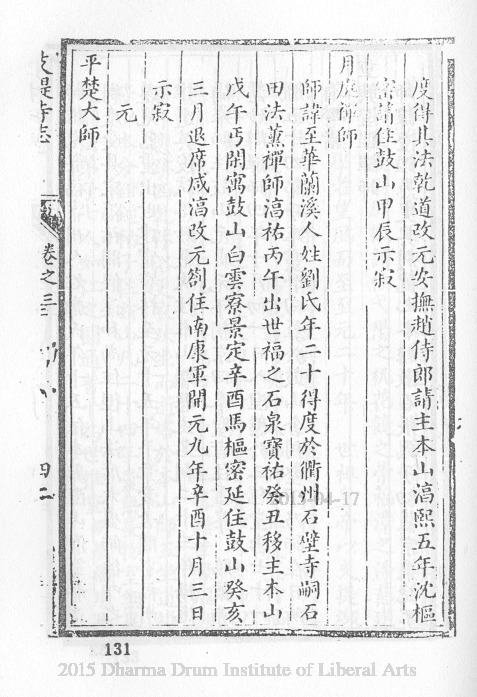 度得其法乾道改元安撫趙侍郎請主本山滈熙五年沈樞
密請住鼓山甲辰示寂
月庭禪師
師諱至華蘭溪人姓劉氏年二十得度於衢州石壁寺嗣石
田法薰禪師滈祐丙午出世福之石泉寶祐癸丑移主本山
戊午丐閑寓鼓山白雲寮景定辛酉馬樞密延住鼓山癸亥
三月退席咸滈改元劄住南康軍開元九年辛酉十月三日
示寂
元
平楚大師
支提寺志
卷之三
四二
131
2013-04-17
2015 Dharma Drum Institute of Liberal Arts